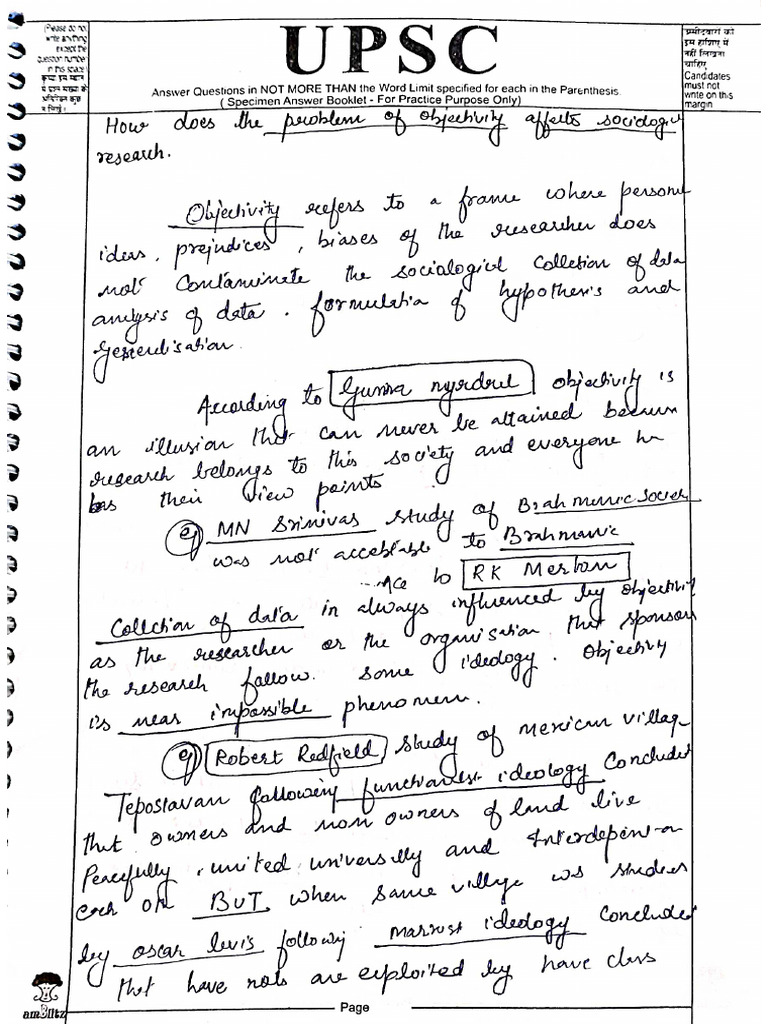 (Please do not
write anything
except the
question number
in this space)
कृपया इस स्थान
में प्रश्न संख्या के
अतिरिक्त कुछ
न लिखें।
UPSC
Answer Questions in NOT MORE THAN the Word Limit specified for each in the Parenthesis.
( Specimen Answer Booklet - For Practice Purpose Only)
उम्मीदवारों को
इस हाशिए में
नहीं लिखना
चाहिए
Candidates
must not
write on this
margin
How does the problem of objectivity affects sociologic
research.
Objectivity refers to a frame where person
ideas, prejudices, biases of the researcher does
not contaminate the sociological colletion of data
analysis of data. formulatio of hypothesis and
According to objectivity is
an illusion that can never be attained because
research belongs to this society and everyone
has their view points
eg MN Srinivas study of Brahmanic societ
was not acceptable to Brahmanic
Acc to RK Merton
Collction of data in always influenced by objectivity
as the researcher or the organisation that sponsors
the research follow some ideology. Objectivity
is near impossible phenomen.
eg Robert Redfield study of mexican villag
following functionalist ideology conclude
that owners and non owners of land live
Peacefully, united universlly and
each oth BUT when same village was studied
by oscar lewis following marxist ideology conclude
that have nots are exploited by have class
amBlitz
Page